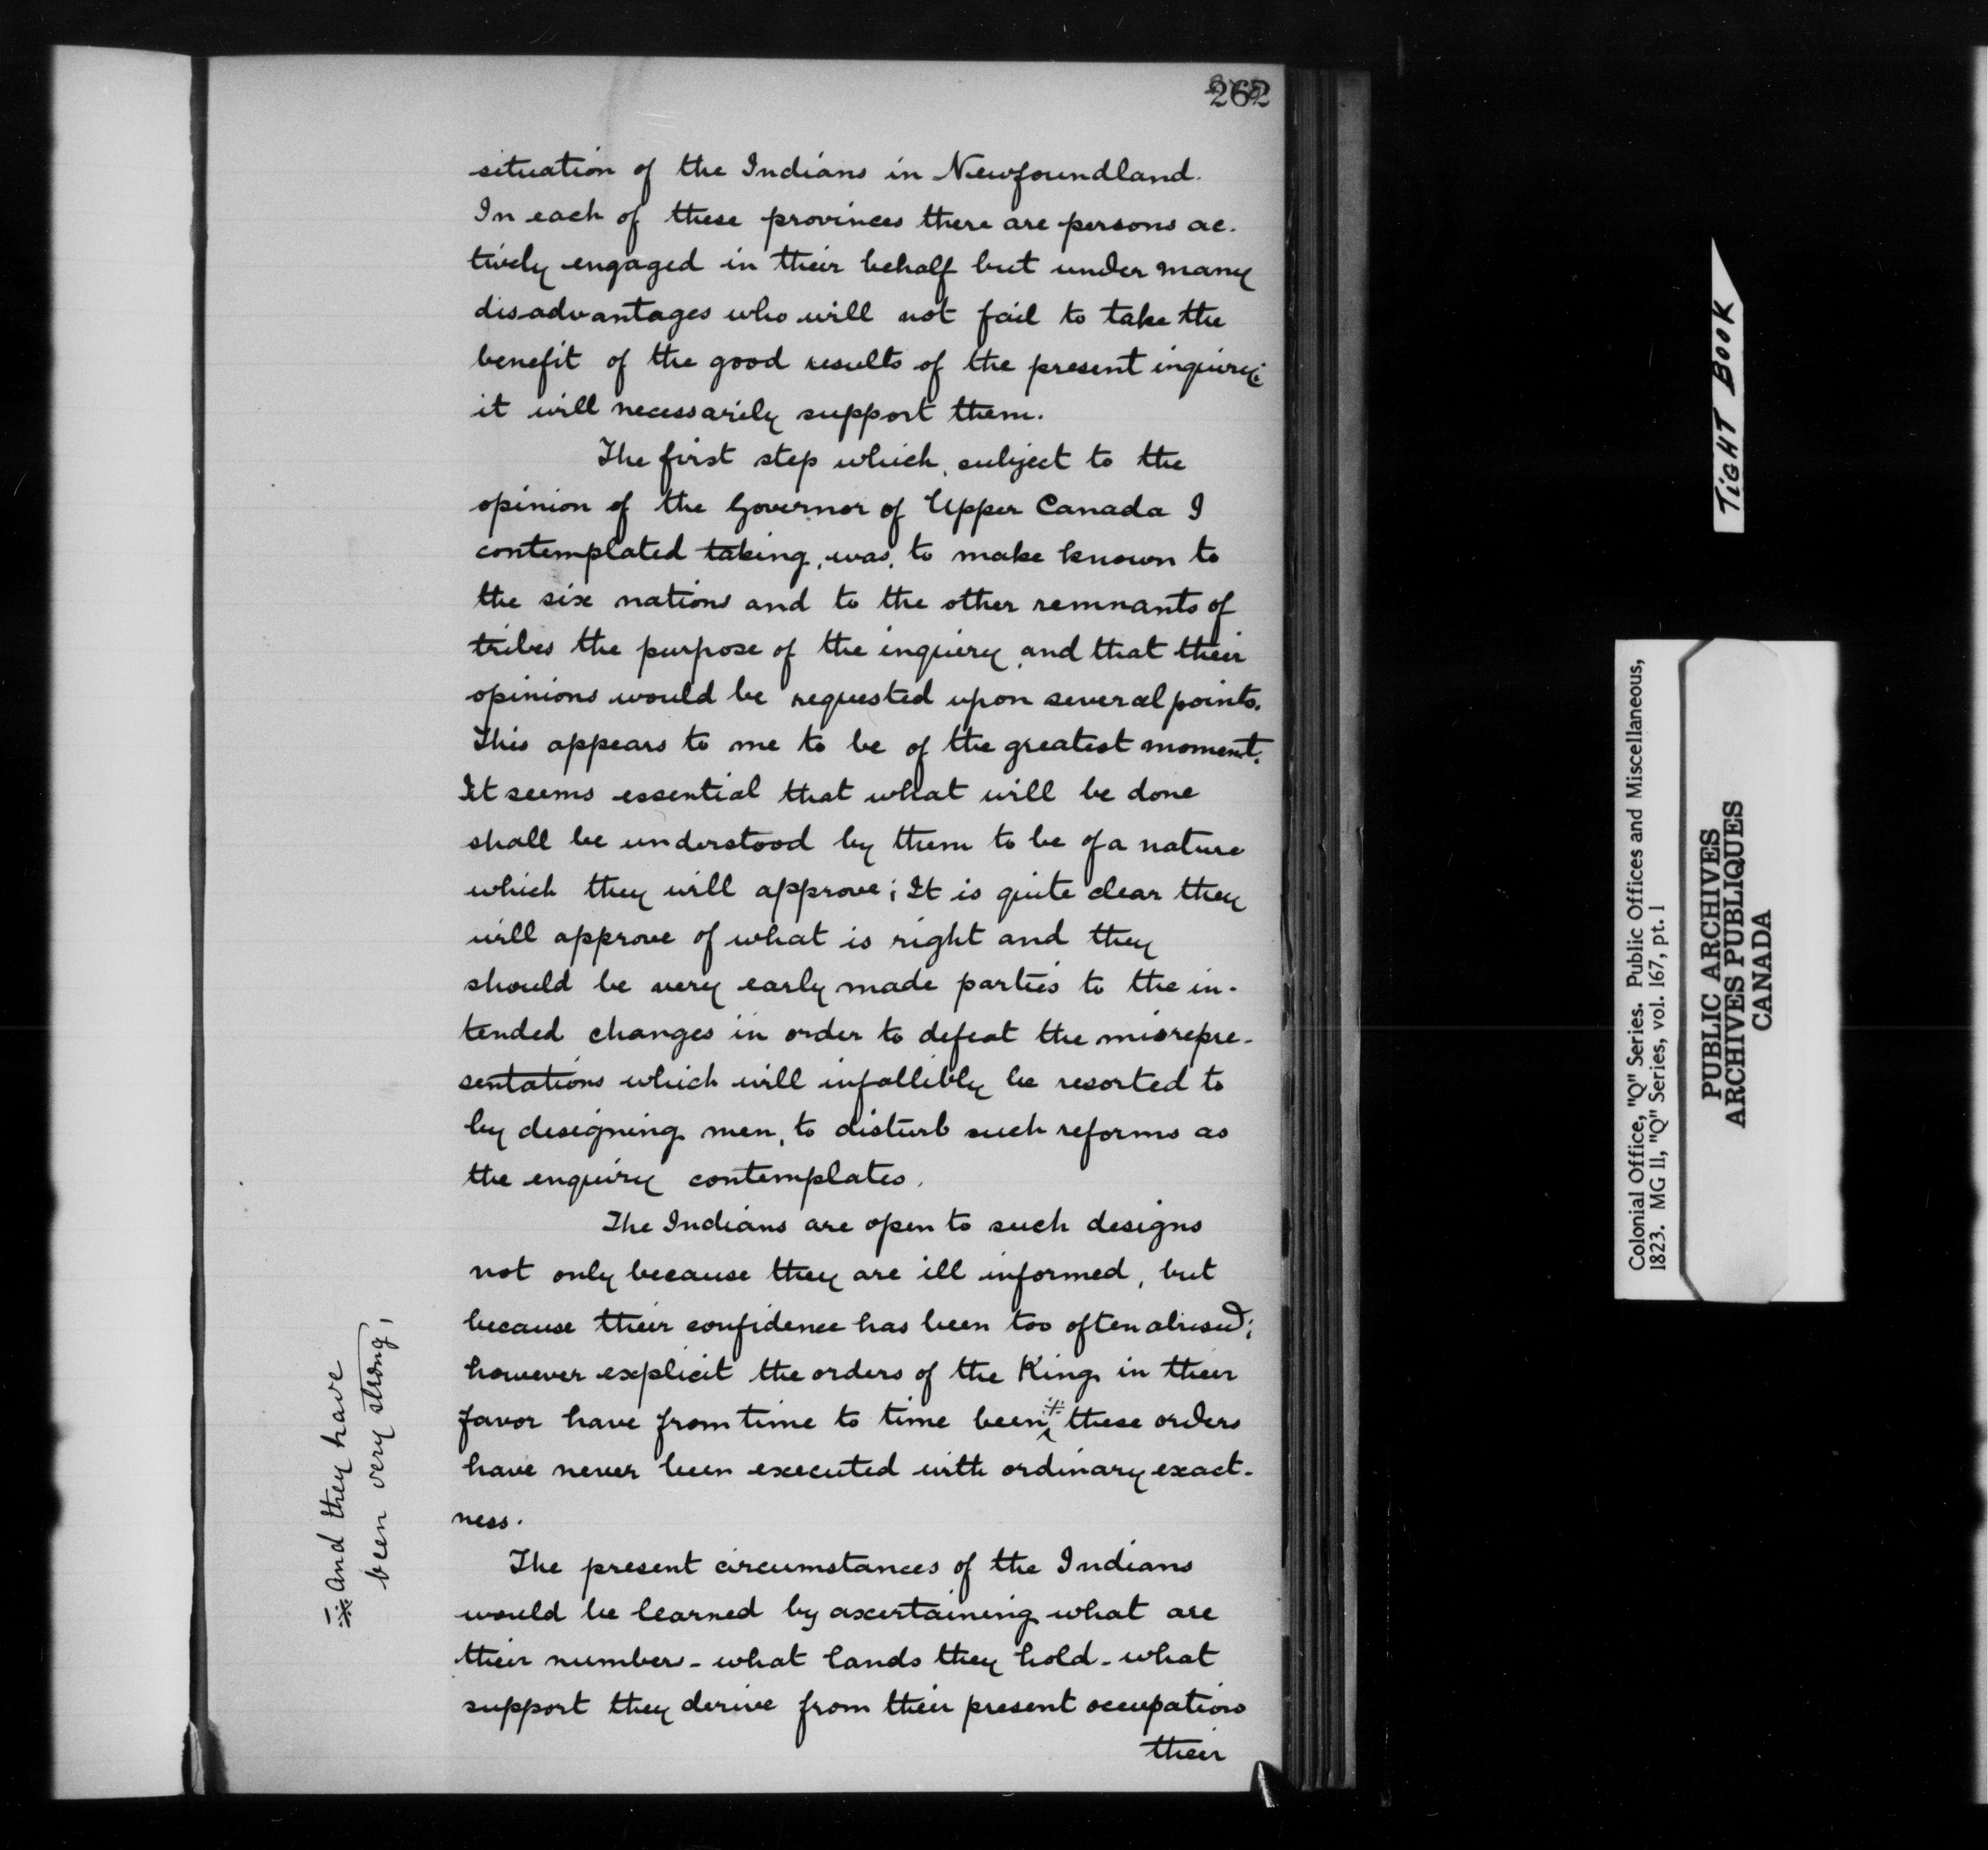 262
situation of the Indians in Newfoundland.
In each of these provinces there are persons ac-
tively engaged in their behalf but under many
disadvantages who will not fail to take the
benefit of the good results of the present inquiry:
it will necessarily support them.
The first step which, subject to the
opinion of the Governor of Upper Canada I
contemplated taking, was, to make known to
the six nations and to the other remnants of
tribes the purpose of the inquiry and that their
opinions would be requested upon several points.
This appears to me to be of the greatest moment.
It seems essential that what will be done
shall be understood by them to be of a nature
which they will approve; It is quite clear they
will approve of what is right and they
should be very early made parties to the in-
tended changes in order to defeat the misrepre-
sentations which will infallibly be resorted to
by designing men, to disturb such reforms as
the enquiry contemplates.
The Indians are open to such designs
not only because they are ill informed, but
because their confidence has been too often abused;
however explicit the orders of the King in their
favor have from time to time been ※ these orders
have never been executed with ordinary exact-
ness.
The present circumstances of the Indians
would be learned by ascertaining what are
their number - what lands they hold - what
support they derive from their present occupations
their
※ and they have
been very strong,
TIGHT BOOK
Colonial Office, "Q" Series. Public Offices and Miscellaneous,
1823. MG 11, "Q" Series, vol. 167, pt. 1
PUBLIC ARCHIVES
ARCHIVES PUBLIQUES
CANADA